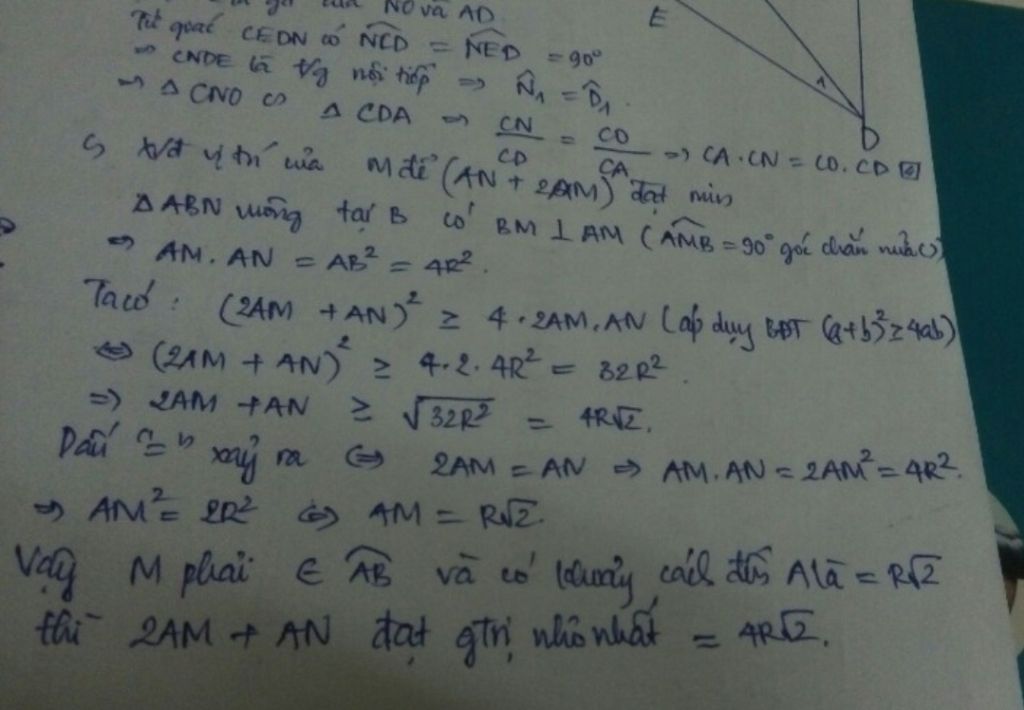 của NO và AD
E
Tứ giác CEDN có N̂CD = N̂ED = 90°
⇒ CNDE là t/g nội tiếp ⇒ N̂₁ = D̂₁.
1
⇒ Δ CNO ∽ Δ CDA ⇒ CN/CD = CO/CA ⇒ CA.CN = CO.CD
D
c) vị trí của M để (AN + 2AM) đạt min
Δ ABN vuông tại B có BM ⊥ AM (ÂMB = 90° góc chắn nửa ()
⇒ AM. AN = AB² = 4R².
Ta có : (2AM + AN)² ≥ 4.2AM.AN (áp dụg BĐT (a+b)² ≥ 4ab)
⇔ (2AM + AN)² ≥ 4.2.4R² = 32R².
⇒ 2AM + AN ≥ √32R² = 4R√2.
Dấu "=" xảy ra ⇔ 2AM = AN ⇒ AM.AN = 2AM² = 4R².
⇒ AM² = 2R² ⇔ AM = R√2.
Vậy M phải ∈ AB và có khoảg cách đến A là = R√2
thì 2AM + AN đạt gtrị nhỏ nhất = 4R√2.